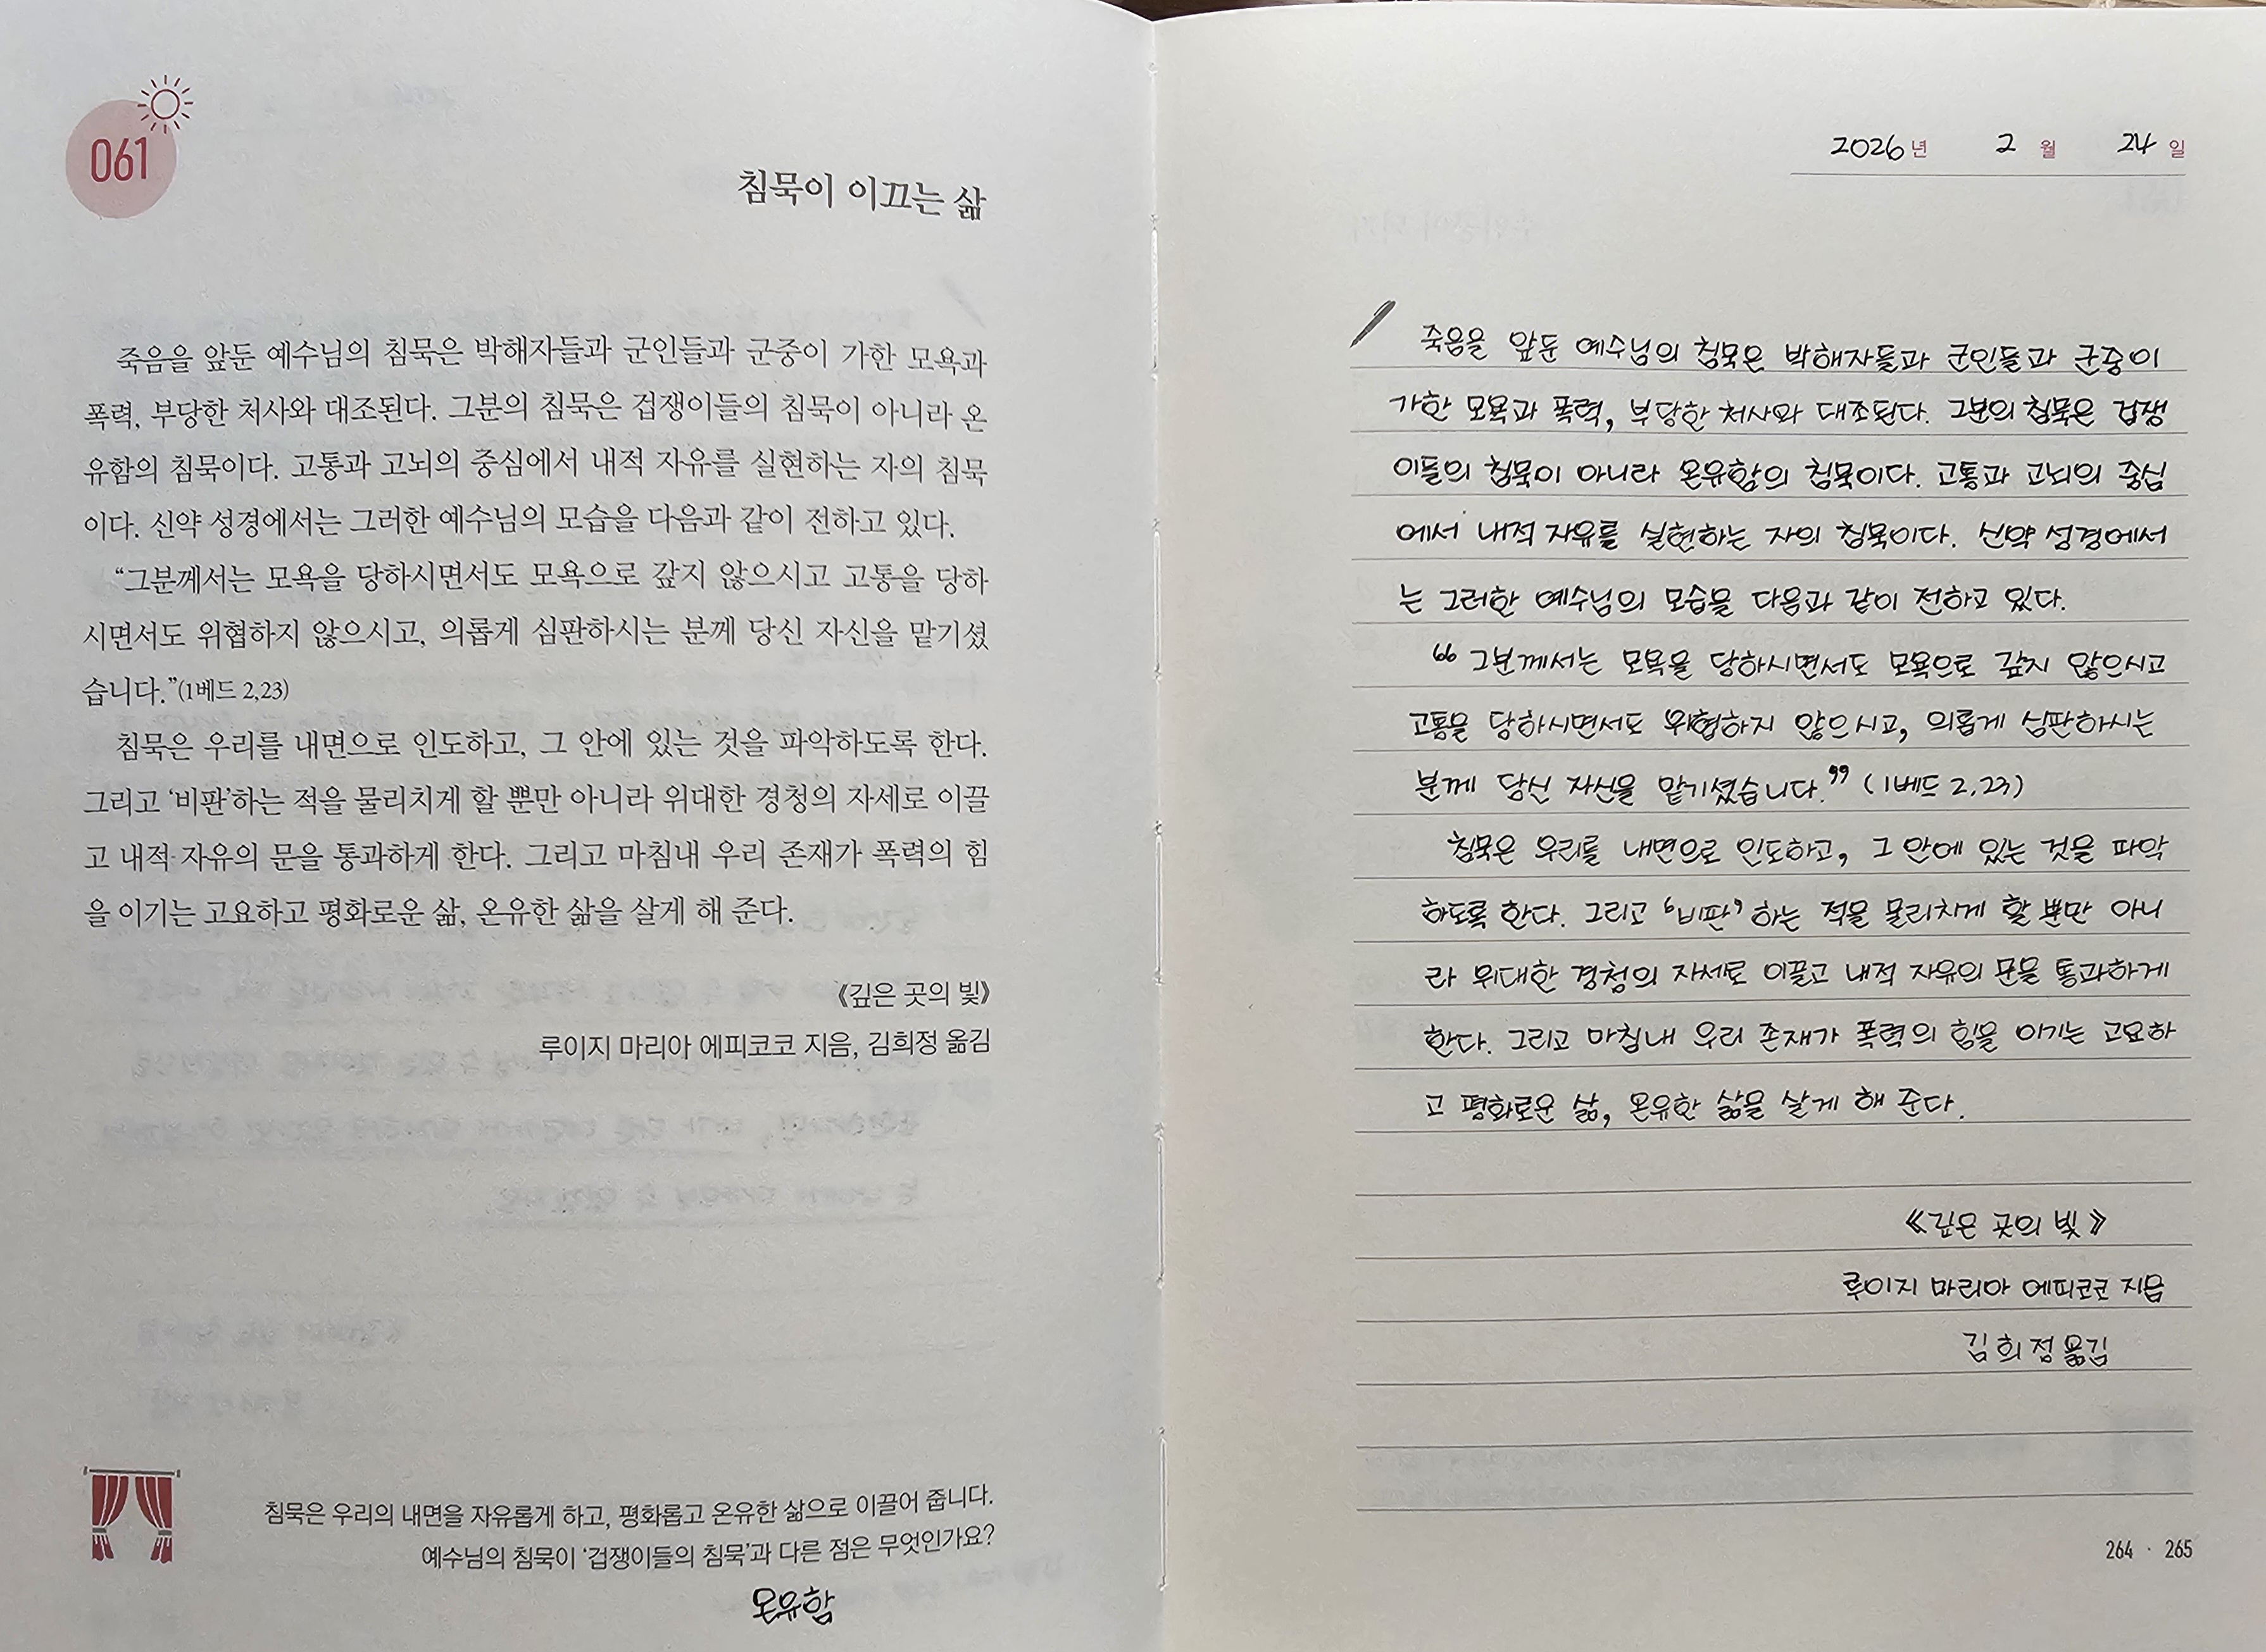 061
침묵이 이끄는 삶
죽음을 앞둔 예수님의 침묵은 박해자들과 군인들과 군중이 가한 모욕과
폭력, 부당한 처사와 대조된다. 그분의 침묵은 겁쟁이들의 침묵이 아니라 온
유함의 침묵이다. 고통과 고뇌의 중심에서 내적 자유를 실현하는 자의 침묵
이다. 신약 성경에서는 그러한 예수님의 모습을 다음과 같이 전하고 있다.
“그분께서는 모욕을 당하시면서도 모욕으로 갚지 않으시고 고통을 당하
시면서도 위협하지 않으시고, 의롭게 심판하시는 분께 당신 자신을 맡기셨
습니다.”(1베드 2,23)
침묵은 우리를 내면으로 인도하고, 그 안에 있는 것을 파악하도록 한다.
그리고 ‘비판’하는 적을 물리치게 할 뿐만 아니라 위대한 경청의 자세로 이끌
고 내적 자유의 문을 통과하게 한다. 그리고 마침내 우리 존재가 폭력의 힘
을 이기는 고요하고 평화로운 삶, 온유한 삶을 살게 해 준다.
《깊은 곳의 빛》
루이지 마리아 에피코코 지음, 김희정 옮김
침묵은 우리의 내면을 자유롭게 하고, 평화롭고 온유한 삶으로 이끌어 줍니다.
예수님의 침묵이 ‘겁쟁이들의 침묵’과 다른 점은 무엇인가요?
온유함
2026년 2월 24일
죽음을 앞둔 예수님의 침묵은 박해자들과 군인들과 군중이
가한 모욕과 폭력, 부당한 처사와 대조된다. 그분의 침묵은 겁쟁
이들의 침묵이 아니라 온유함의 침묵이다. 고통과 고뇌의 중심
에서 내적 자유를 실현하는 자의 침묵이다. 신약 성경에서
는 그러한 예수님의 모습을 다음과 같이 전하고 있다.
“그분께서는 모욕을 당하시면서도 모욕으로 갚지 않으시고
고통을 당하시면서도 위협하지 않으시고, 의롭게 심판하시는
분께 당신 자신을 맡기셨습니다.” (1베드 2,23)
침묵은 우리를 내면으로 인도하고, 그 안에 있는 것을 파악
하도록 한다. 그리고 ‘비판’ 하는 적을 물리치게 할 뿐만 아니
라 위대한 경청의 자세로 이끌고 내적 자유의 문을 통과하게
한다. 그리고 마침내 우리 존재가 폭력의 힘을 이기는 고요하
고 평화로운 삶, 온유한 삶을 살게 해 준다.
《깊은 곳의 빛》
루이지 마리아 에피코코 지음
김희정 옮김
264 · 265